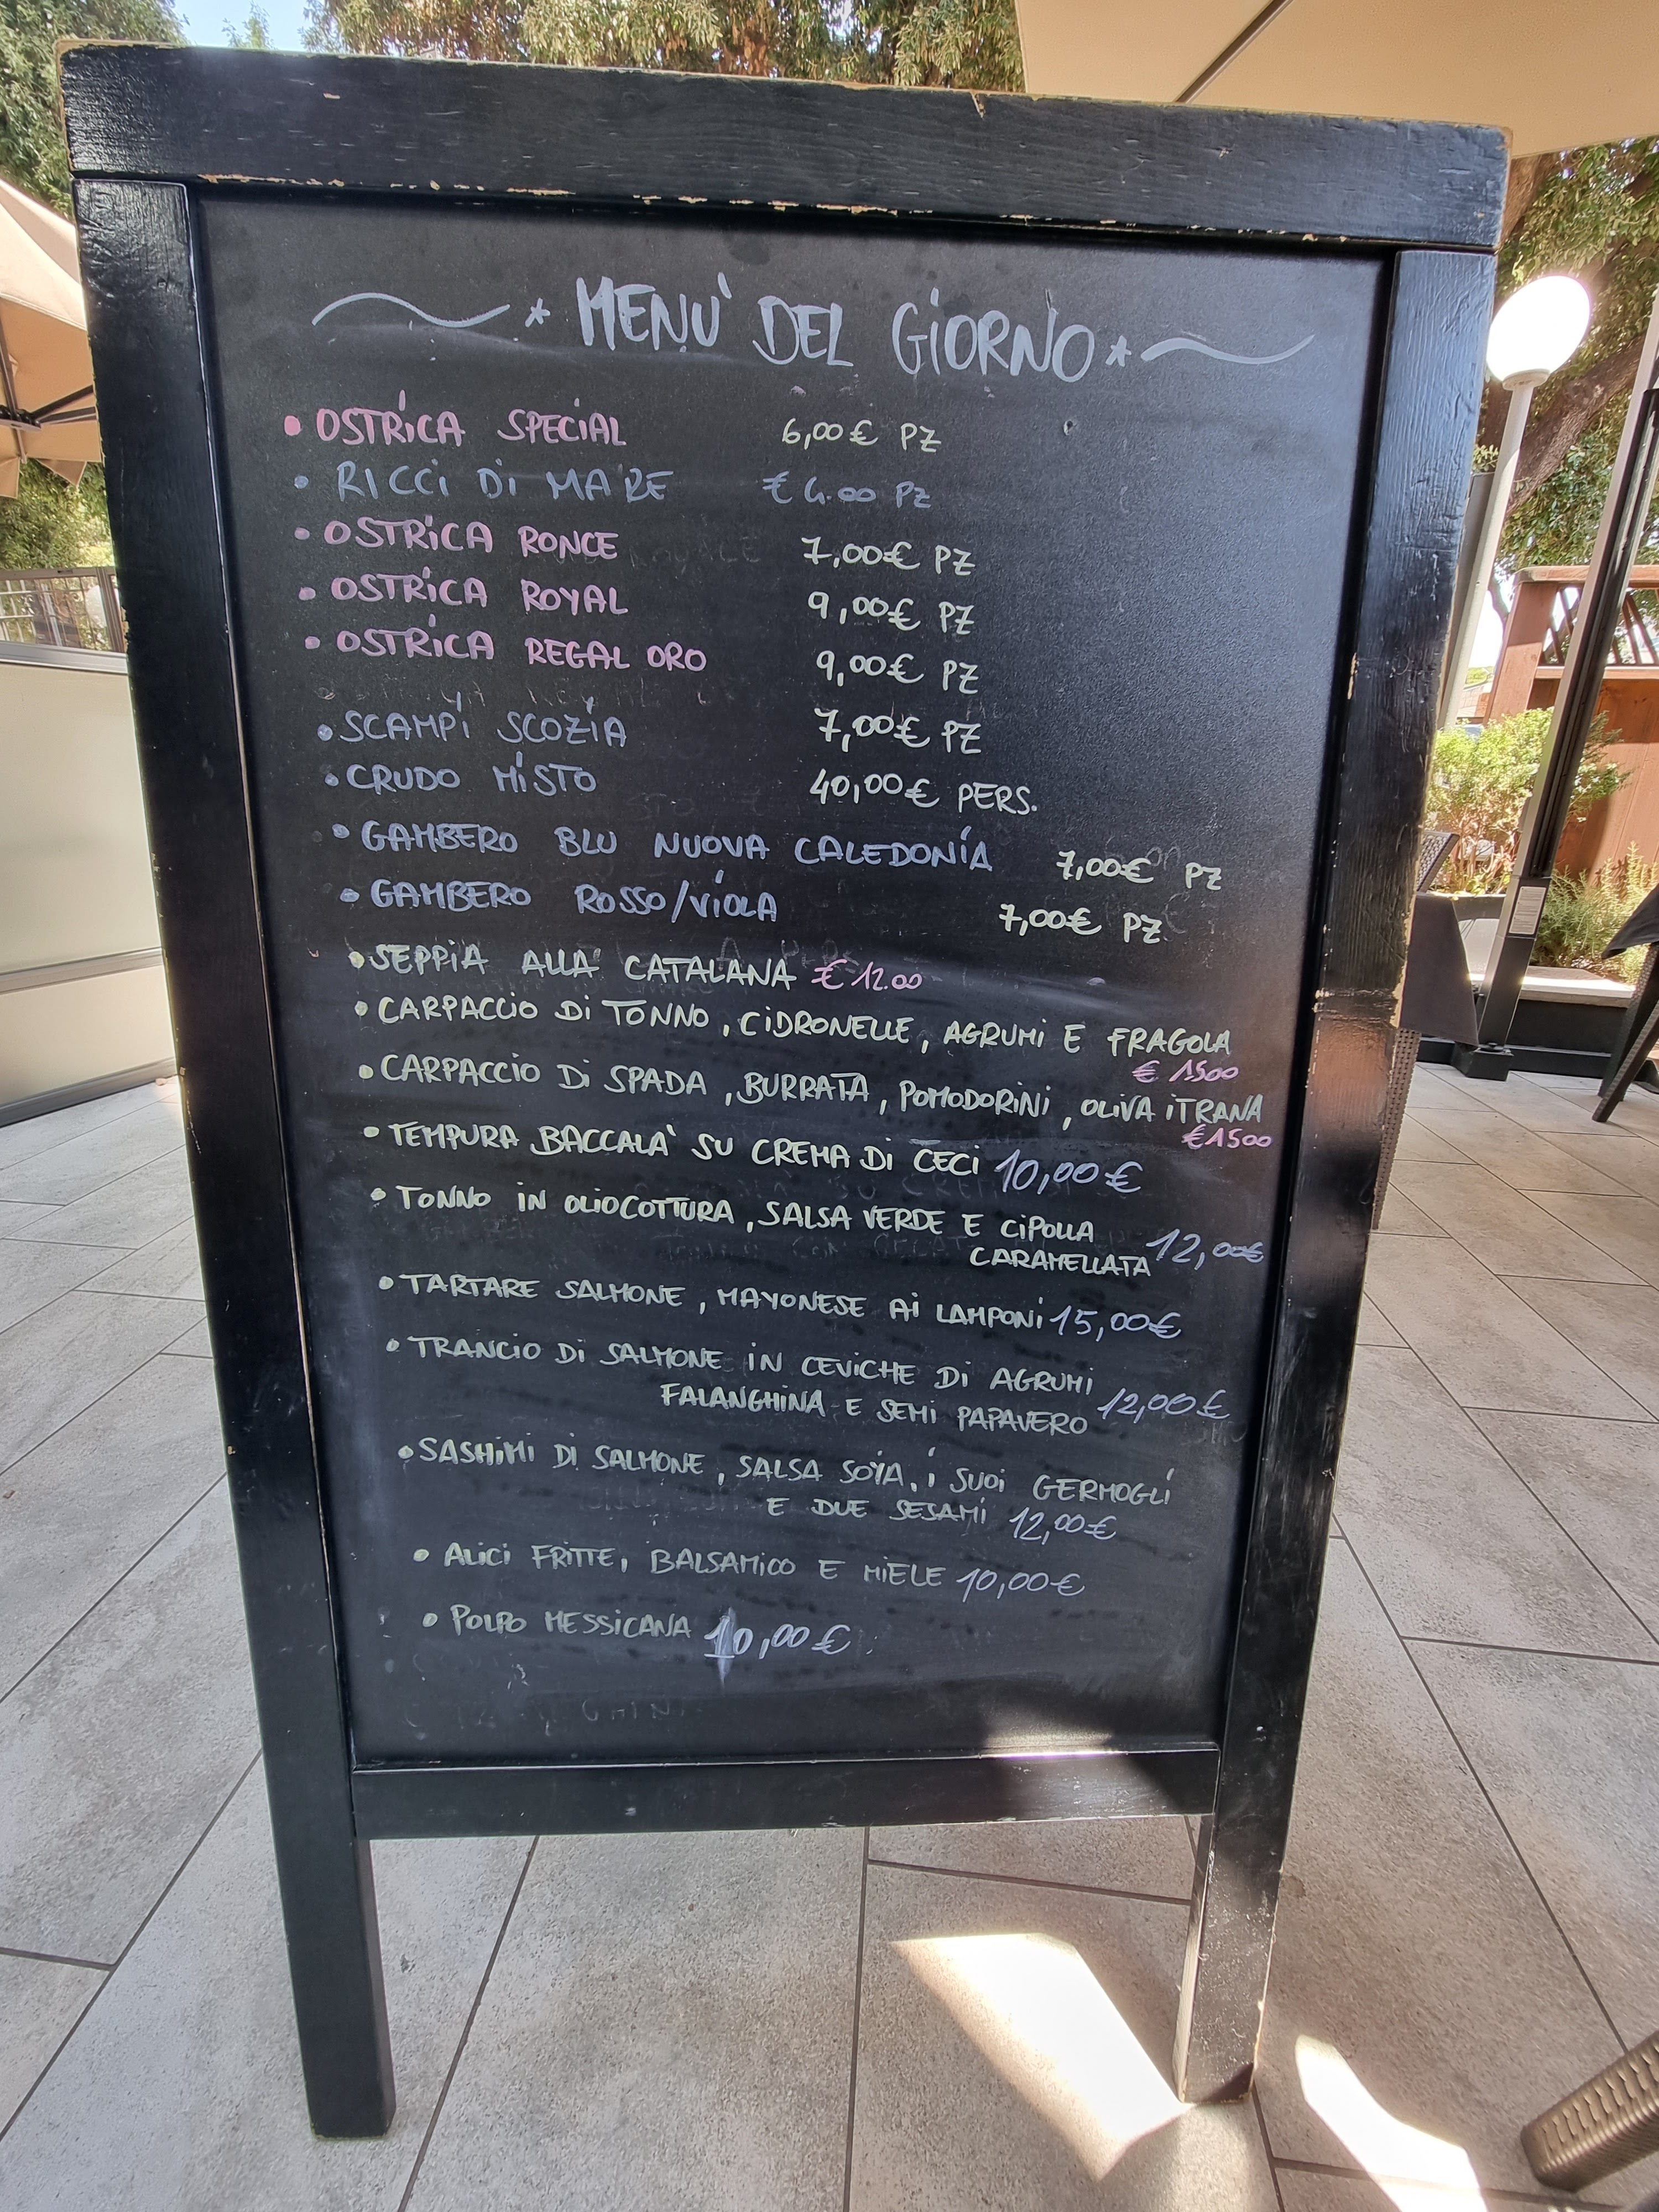 * MENU' DEL GIORNO *
• OSTRICA SPECIAL 6,00€ PZ
• RICCI DI MARE € 4.00 PZ
• OSTRICA RONCE 7,00€ PZ
• OSTRICA ROYAL 9,00€ PZ
• OSTRICA REGAL ORO 9,00€ PZ
• SCAMPI SCOZIA 7,00€ PZ
• CRUDO MISTO 40,00€ PERS.
• GAMBERO BLU NUOVA CALEDONIA 7,00€ PZ
• GAMBERO ROSSO/VIOLA 7,00€ PZ
• SEPPIA ALLA CATALANA € 12.00
• CARPACCIO DI TONNO, CIDRONELLE, AGRUMI E FRAGOLA
€ 1500
• CARPACCIO DI SPADA, BURRATA, POMODORINI, OLIVA ITRANA
€ 1500
• TEMPURA BACCALA' SU CREMA DI CECI 10,00€
• TONNO IN OLIOCOTTURA, SALSA VERDE E CIPOLLA
CARAMELLATA 12,00€
• TARTARE SALMONE, MAYONESE AI LAMPONI 15,00€
• TRANCIO DI SALMONE IN CEVICHE DI AGRUMI
FALANGHINA E SEMI PAPAVERO 12,00€
• SASHIMI DI SALMONE, SALSA SOYA, I SUOI GERMOGLI
E DUE SESAMI 12,00€
• ALICI FRITTE, BALSAMICO E MIELE 10,00€
• POLPO MESSICANA 10,00€